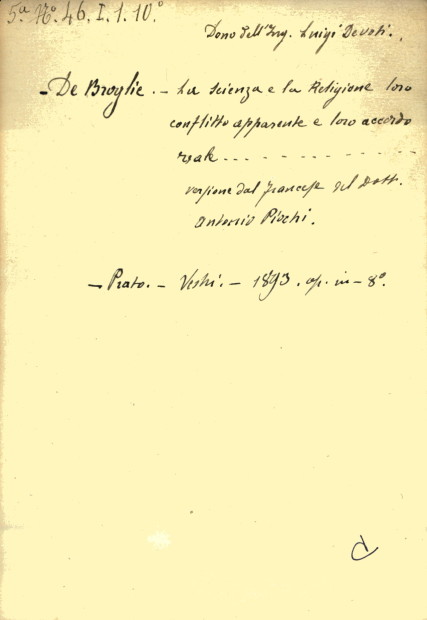 5.ª Nº. 46. I. 1. 10.º
Dono dell'Ing. Luigi Devoti.
- De Broglie. - La scienza e la Religione loro
conflitto apparente e loro accordo
reale . . . . . . . . . . . .
versione dal francese del Dott.
Antonio Piochi.
- Prato. - Vestri. - 1893. op. in - 8º.